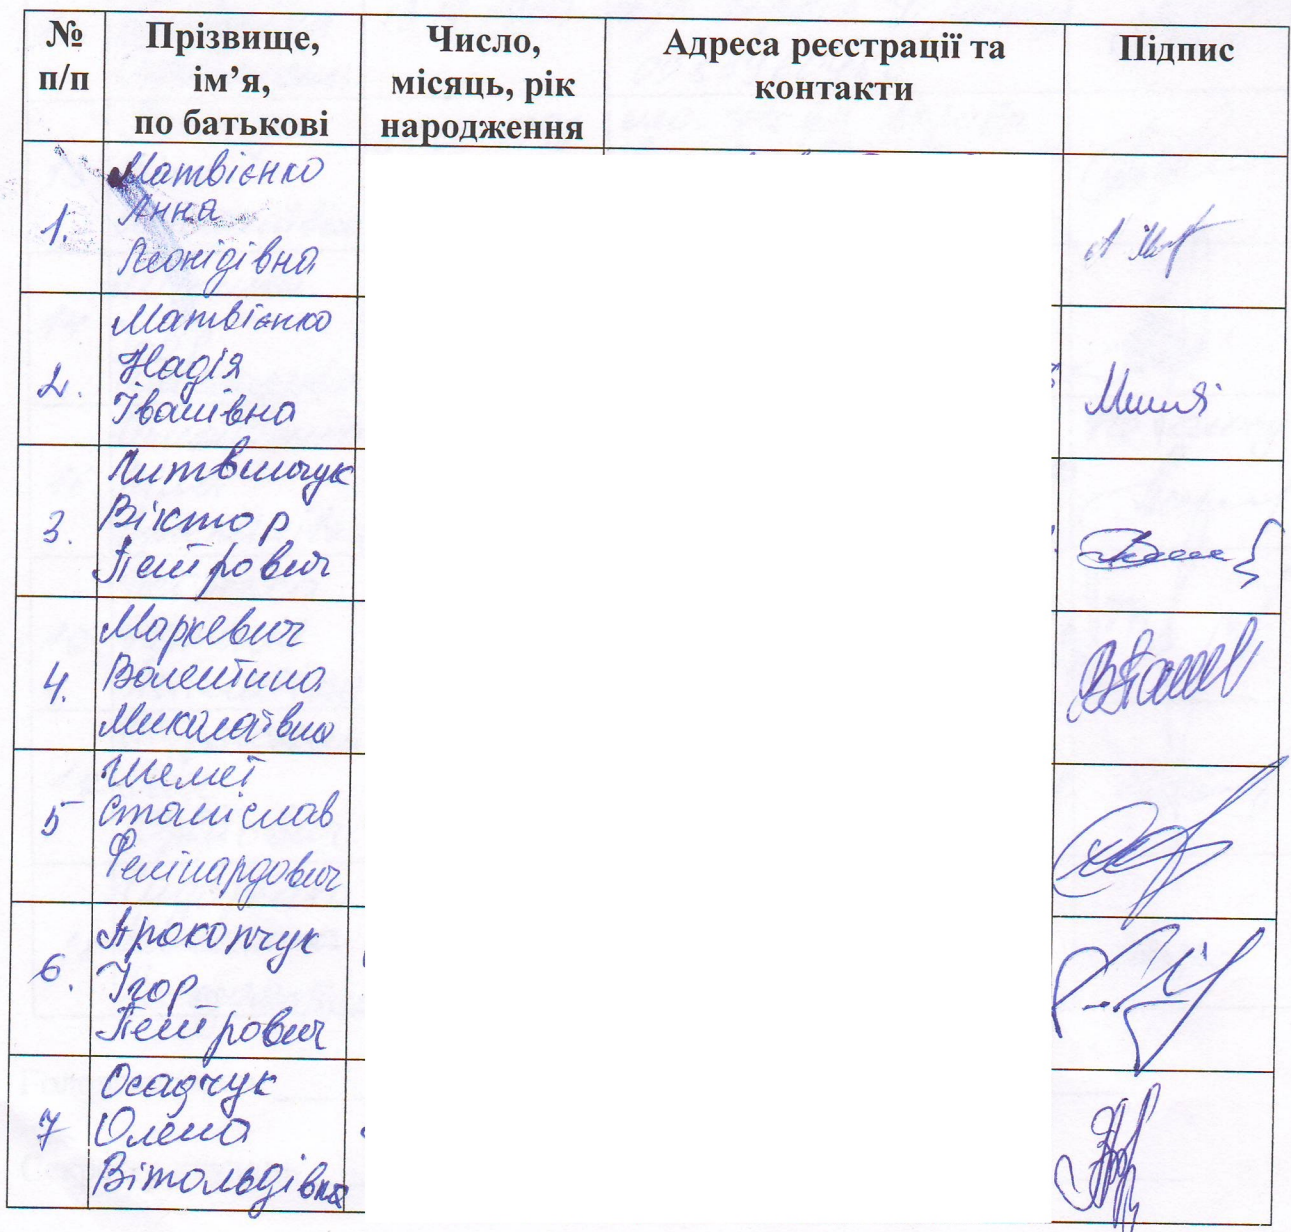 № п/п
Прізвище, ім’я, по батькові
Число, місяць, рік народження
Адреса реєстрації та контакти
Підпис
1.
Матвієнко
Анна
Леонідівна
2.
Матвієнко
Надія
Іванівна
3.
Литвинчук
Віктор
Петрович
4.
Маркевич
Валентина
Миколаївна
5
Шемет
Станіслав
6.
Прокопчук
Ігор
Петрович
7
Осадчук
Олена
Вітольдівна